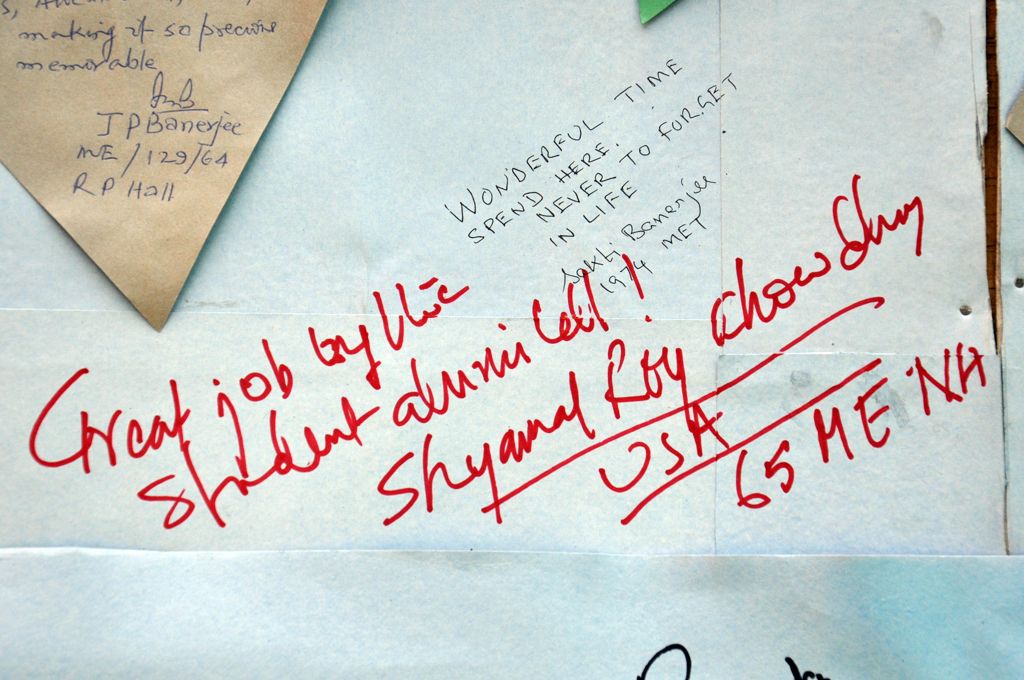 making it so precious
memorable
JPBanerjee
ME/129/64
RP Hall
WONDERFUL TIME
SPEND HERE.
NEVER TO FORGET
IN LIFE
Sakti Banerjee
1974 MET
Great job by the
student alumni cell!
Shyamal Roy Chowdhury
USA
65 ME NH